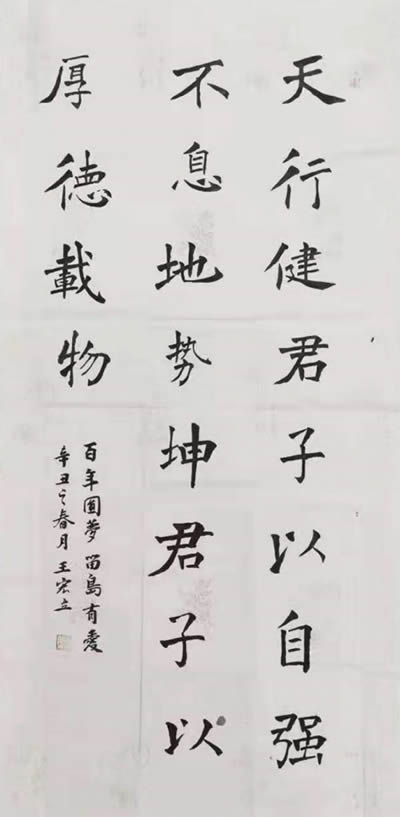 天行健君子以自强
不息地势坤君子以
厚德載物
百年圆夢 留島有愛
辛丑之春月王宏立